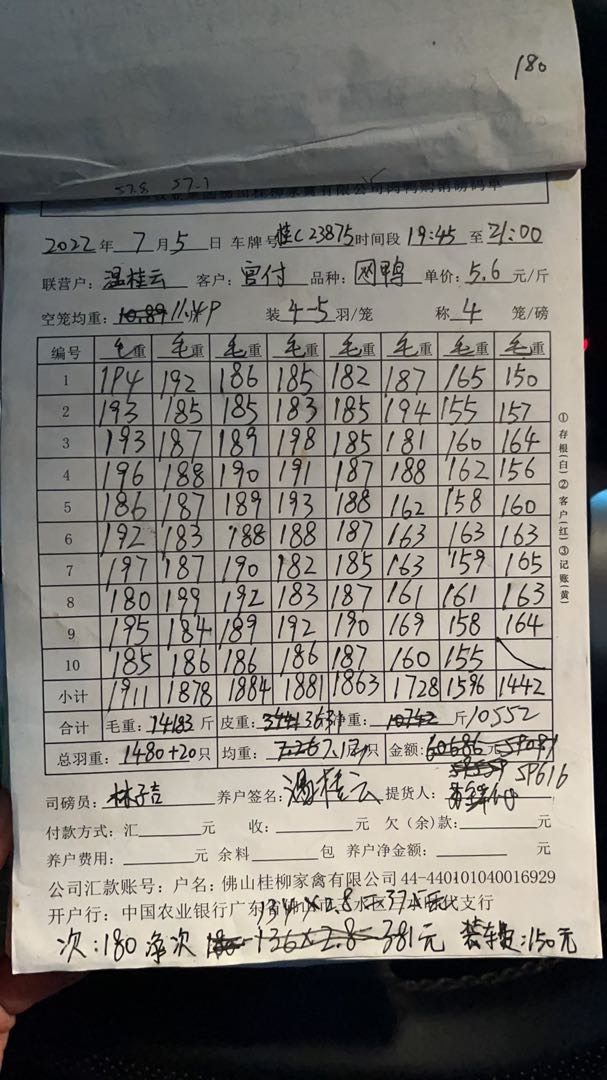 180
57.8 57.1
佛山桂柳家禽有限公司肉鸭购销磅码单
2022年7月5日 车牌号桂C23875时间段19:45至21:00
联营户:温桂云 客户:宫付 品种:网鸭 单价:5.6元/斤
空笼均重: 装4-5羽/笼 称4笼/磅
编号 毛重 毛重 毛重 毛重 毛重 毛重 毛重 毛重
1 194 192 186 185 182 187 165 150
2 193 185 185 183 185 194 155 157
3 193 187 189 198 185 181 160 164
4 196 188 190 191 187 188 162 156
5 186 187 189 193 188 162 158 160
6 192 183 188 188 187 163 163 163
7 197 187 190 182 185 163 159 165
8 180 199 192 183 187 161 161 163
9 195 184 189 192 190 169 158 164
10 185 186 186 186 187 160 155
小计 1911 1878 1884 1881 1863 1728 1596 1442
合计 毛重:14183斤 皮重:3631 净重:10742斤 10552
总羽重:1480+20只 均重: 只 金额:60686元 59616
司磅员:林子吉 养户签名:温桂云 提货人:
付款方式:汇 元 收: 元 欠(余)款: 元
养户费用: 元 余料 包 养户净金额: 元
公司汇款账号:户名:佛山桂柳家禽有限公司44-440101040016929
开户行:中国农业银行广东 水区 代支行
134×2.8=375元
次:180 净次 136×2.8=381元 装车费:150元
①存根(白)②客户(红)③记账(黄)